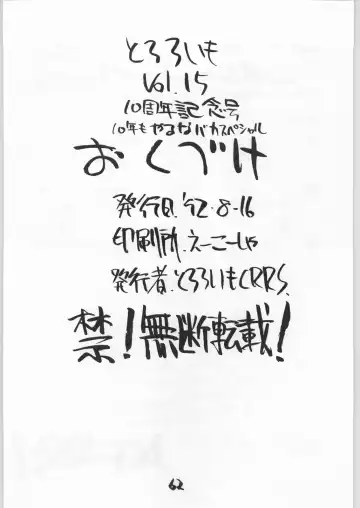 とろろいも
Vol.15
10周年記念号
10年もやるなバカスペシャル
おくづけ
発行日.'92・8・16
印刷所.えーこーしゃ
発行者.とろろいもCRRS.
禁!無断転載!
62